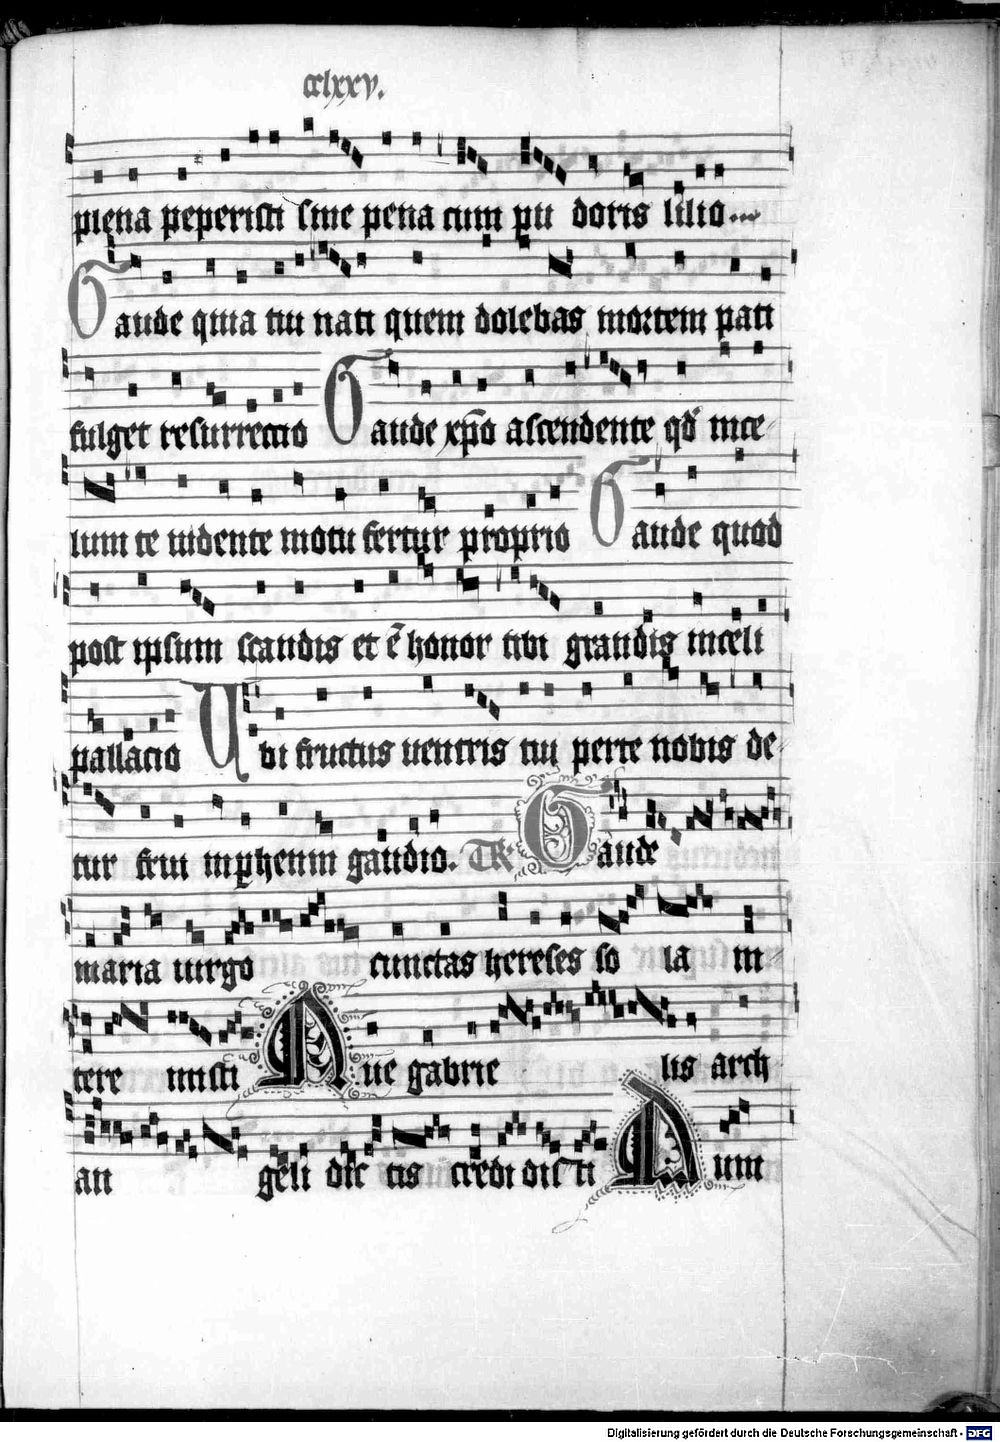 cclxxv.
plena peperisti sine pena cum pu doris lilio
Gaude quia tui nati quem dolebas mortem pati
fulget resurrectio Gaude xp̄o ascendente qd̓ in ce
lum te uidente motu fertur proprio Gaude quod
post ipsum scandis et ē honor tibi grandis in celi
pallacio Ubi fructus uentris tui per te nobis de
tur frui in perhenni gaudio. TR. Gaude
maria uirgo cunctas hereses so la in
tere misti Aue gabrie lis arch
an geli dic tis credi dis ti Dum
Digitalisierung gefördert durch die Deutsche Forschungsgemeinschaft - DFG